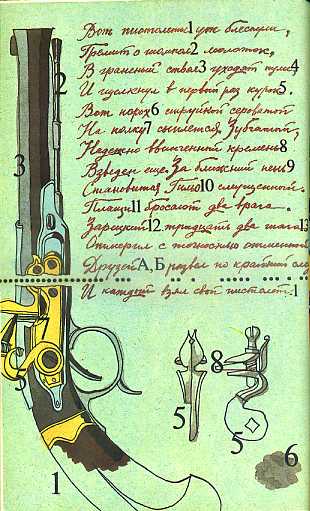 Вот пистолеты1 уж блеснули,
Гремит о шомпол2 молоток,
В граненый ствол3 уходят пули4
И щелкнул в первый раз курок5.
Вот порох6 струйкой сероватой
На полку7 сыплется. Зубчатый,
Надежно ввинченный кремень8
Взведен еще. За ближний пень9
Становится Гильо10 смущенный.
Плащи11 бросают два врага.
Зарецкий12 тридцать два шага13
Отмерил с точностью отменной
Друзей А,Б развел по крайний сле
И каждый взял свой пистолет.1
2
3
7
5
8
5
5
6
1